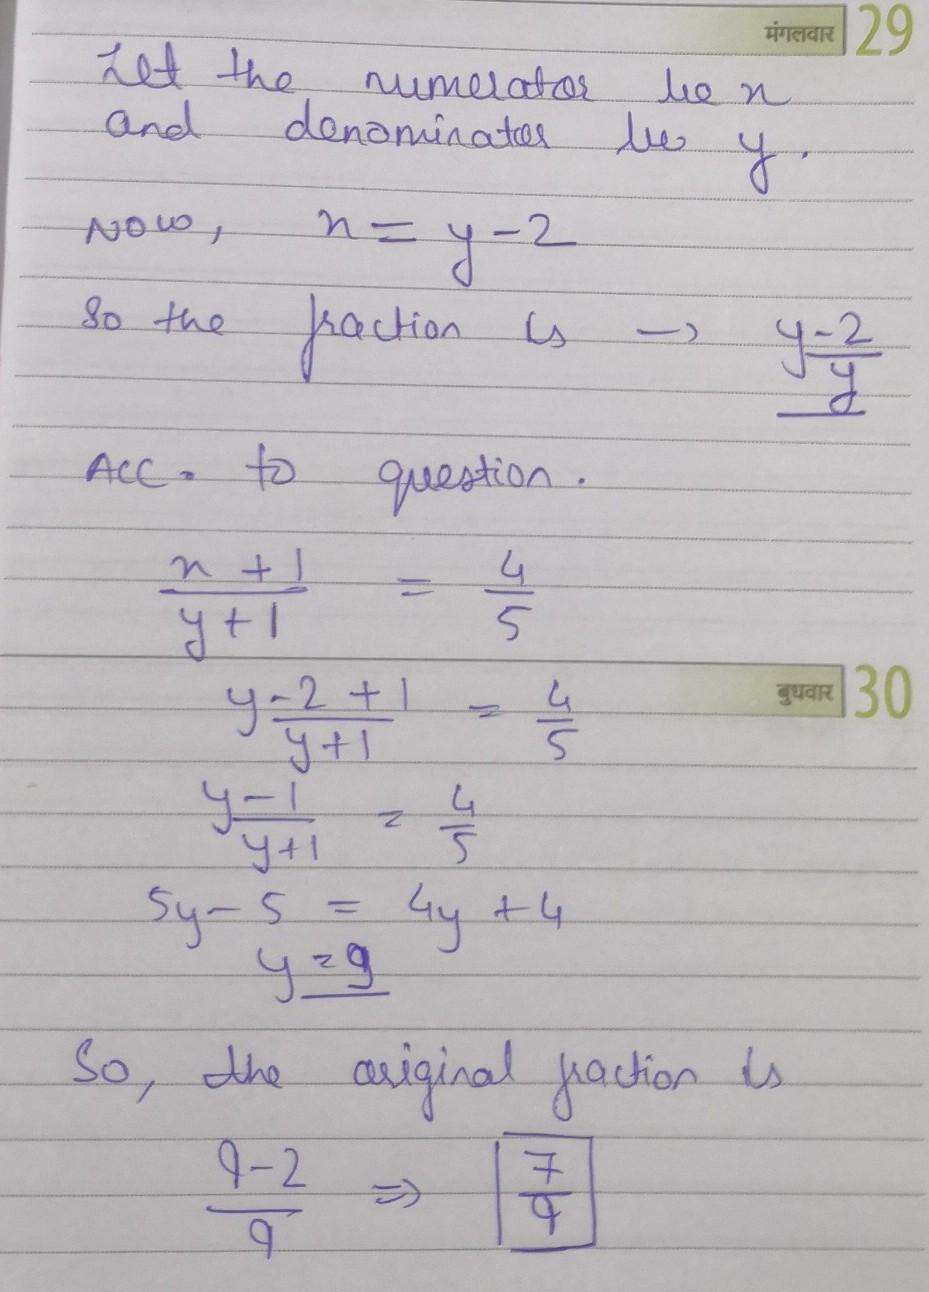 मंगलवार 29
Let the numerator be x
and denominator be y.
Now, x = y-2
So the fraction is → y-2/y
Acc. to question.
x+1/y+1 = 4/5
बुधवार 30
y-2+1/y+1 = 4/5
y-1/y+1 = 4/5
5y-5 = 4y+4
y=9
So, the original fraction is
9-2/9 ⇒ 7/9